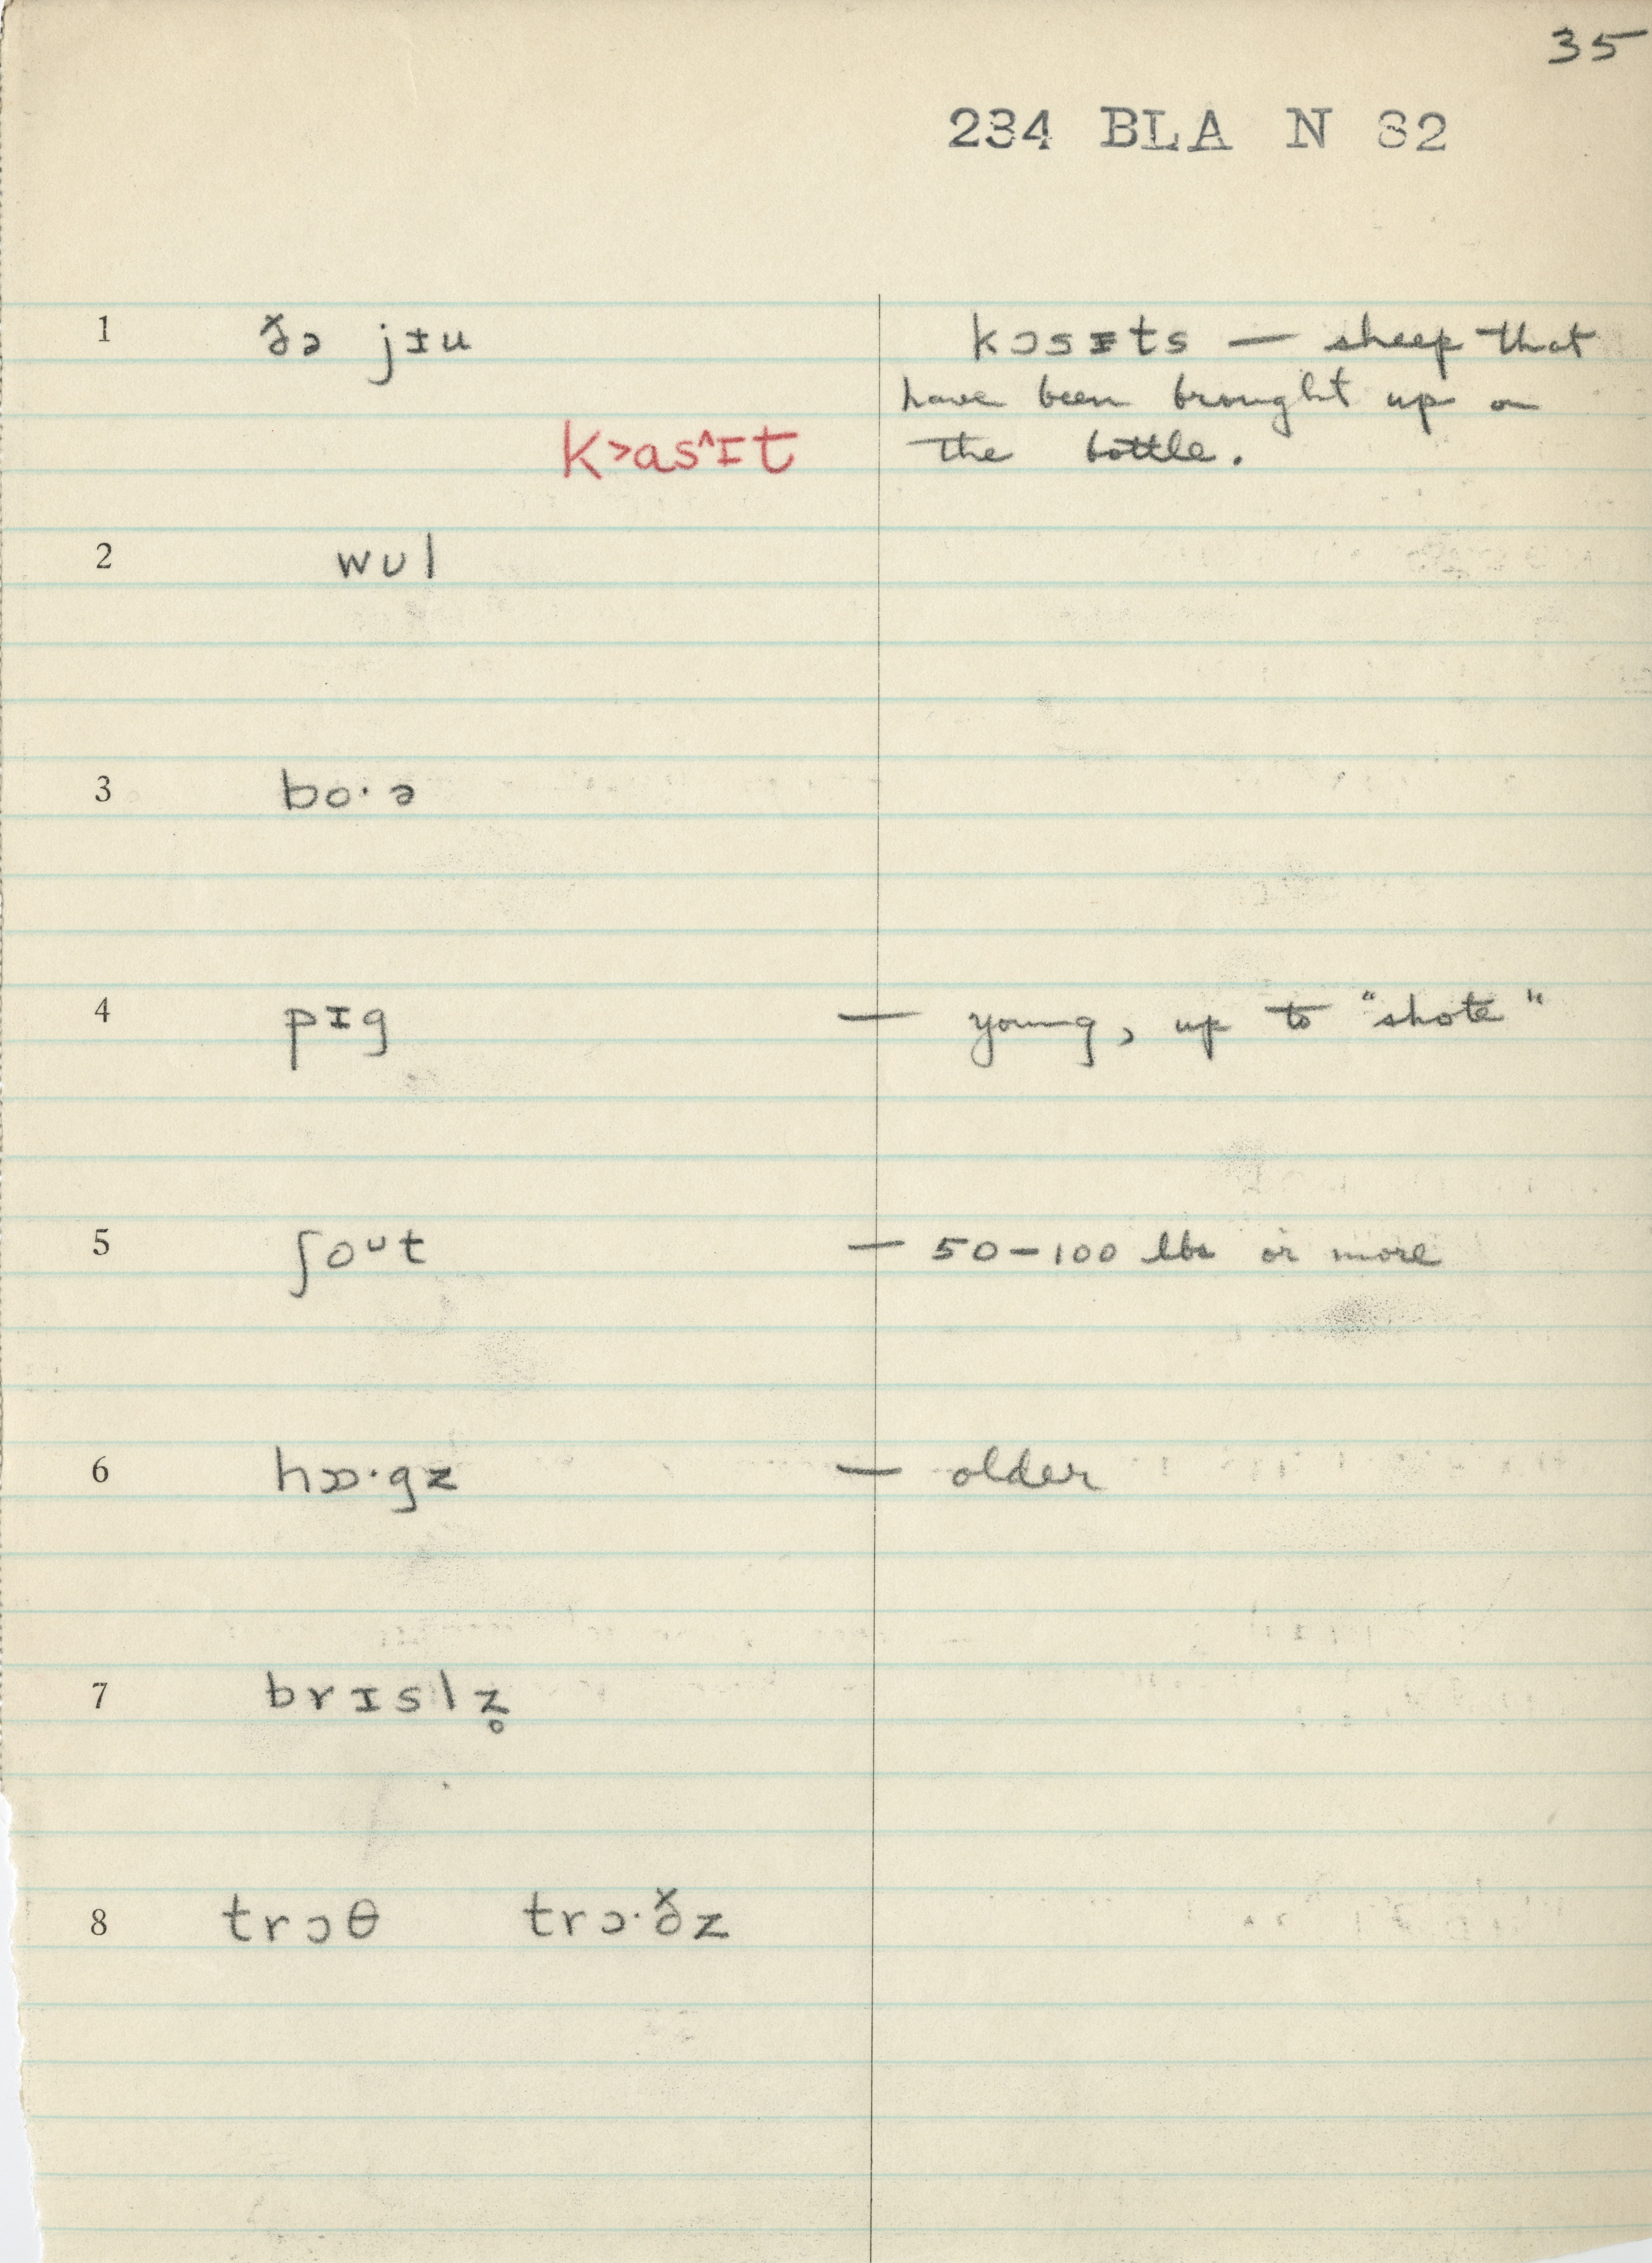 35
234 BLA N 32
1 ðə jɪu
kɔsɪts — sheep that
have been brought up on
the bottle.
k>as^ɪt
2 wʊl
3 bo·ə
4 pɪg — young, up to "shote"
5 ʃoᴜt — 50-100 lbs or more
6 hɔɔ·gz — older
7 brɪslz̥
8 trɔθ trɔ·ðz